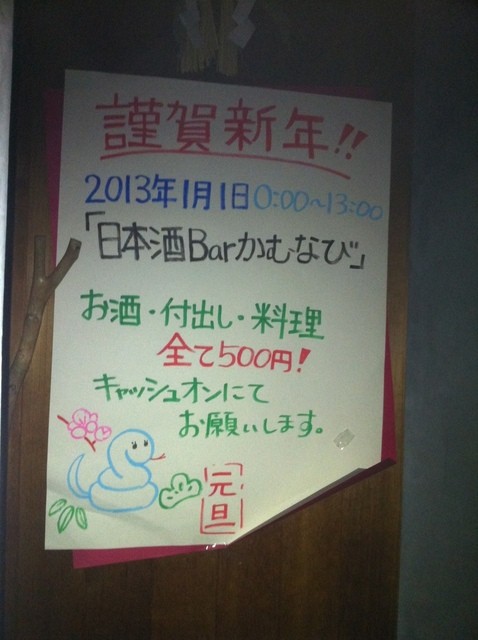 謹賀新年!!
2013年1月1日0:00~13:00
「日本酒Barかむなび」
お酒・付出し・料理
全て500円!
キャッシュオンにて
お願いします。
元旦